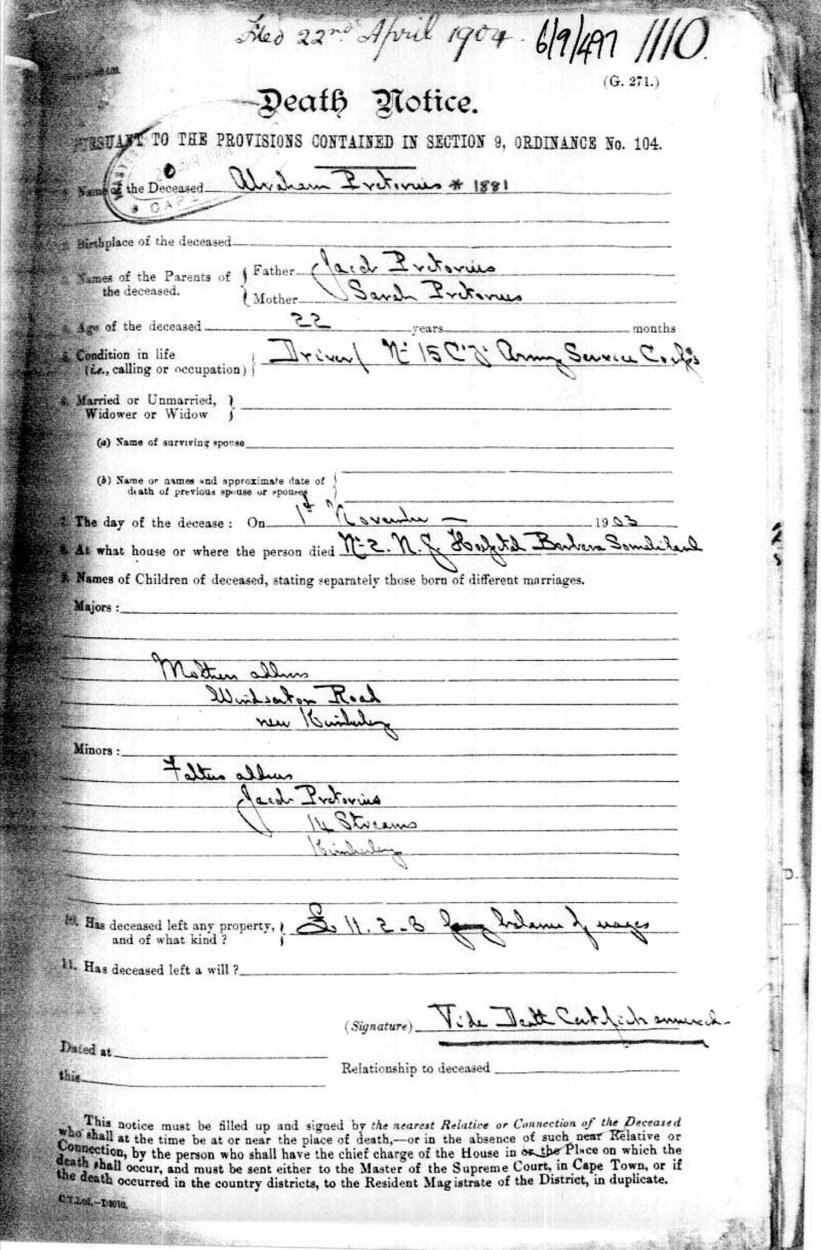 Filed 22nd April 1904. 6/9/497 1110.
(G. 271.)
Death Notice.
PURSUANT TO THE PROVISIONS CONTAINED IN SECTION 9, ORDINANCE No. 104.
1. Name of the Deceased Abraham Pretorius * 1881
2. Birthplace of the deceased
3. Names of the Parents of the deceased. Father Jacob Pretorius
Mother Sarah Pretorius
4. Age of the deceased 22 years months
5. Condition in life (i.e., calling or occupation) Driver No 15 Army Service Corps
6. Married or Unmarried, Widower or Widow
(a) Name of surviving spouse
(b) Name or names and approximate date of
death of previous spouse or spouses
7. The day of the decease: On 1st November 1903
8. At what house or where the person died No 2. N. F. Hospital Berbera Somaliland
9. Names of Children of deceased, stating separately those born of different marriages.
Majors:
Mothers address
Windsorton Road
near Kimberley
Minors:
Fathers address
Jacob Pretorius
14 Streams
Kimberley
10. Has deceased left any property, and of what kind? £ 11. 2 - 3 balance of wages
11. Has deceased left a will?
(Signature) Vide Death Certificate annexed
Dated at
this
Relationship to deceased
This notice must be filled up and signed by the nearest Relative or Connection of the Deceased
who shall at the time be at or near the place of death,—or in the absence of such near Relative or
Connection, by the person who shall have the chief charge of the House in or the Place on which the
death shall occur, and must be sent either to the Master of the Supreme Court, in Cape Town, or if
the death occurred in the country districts, to the Resident Magistrate of the District, in duplicate.